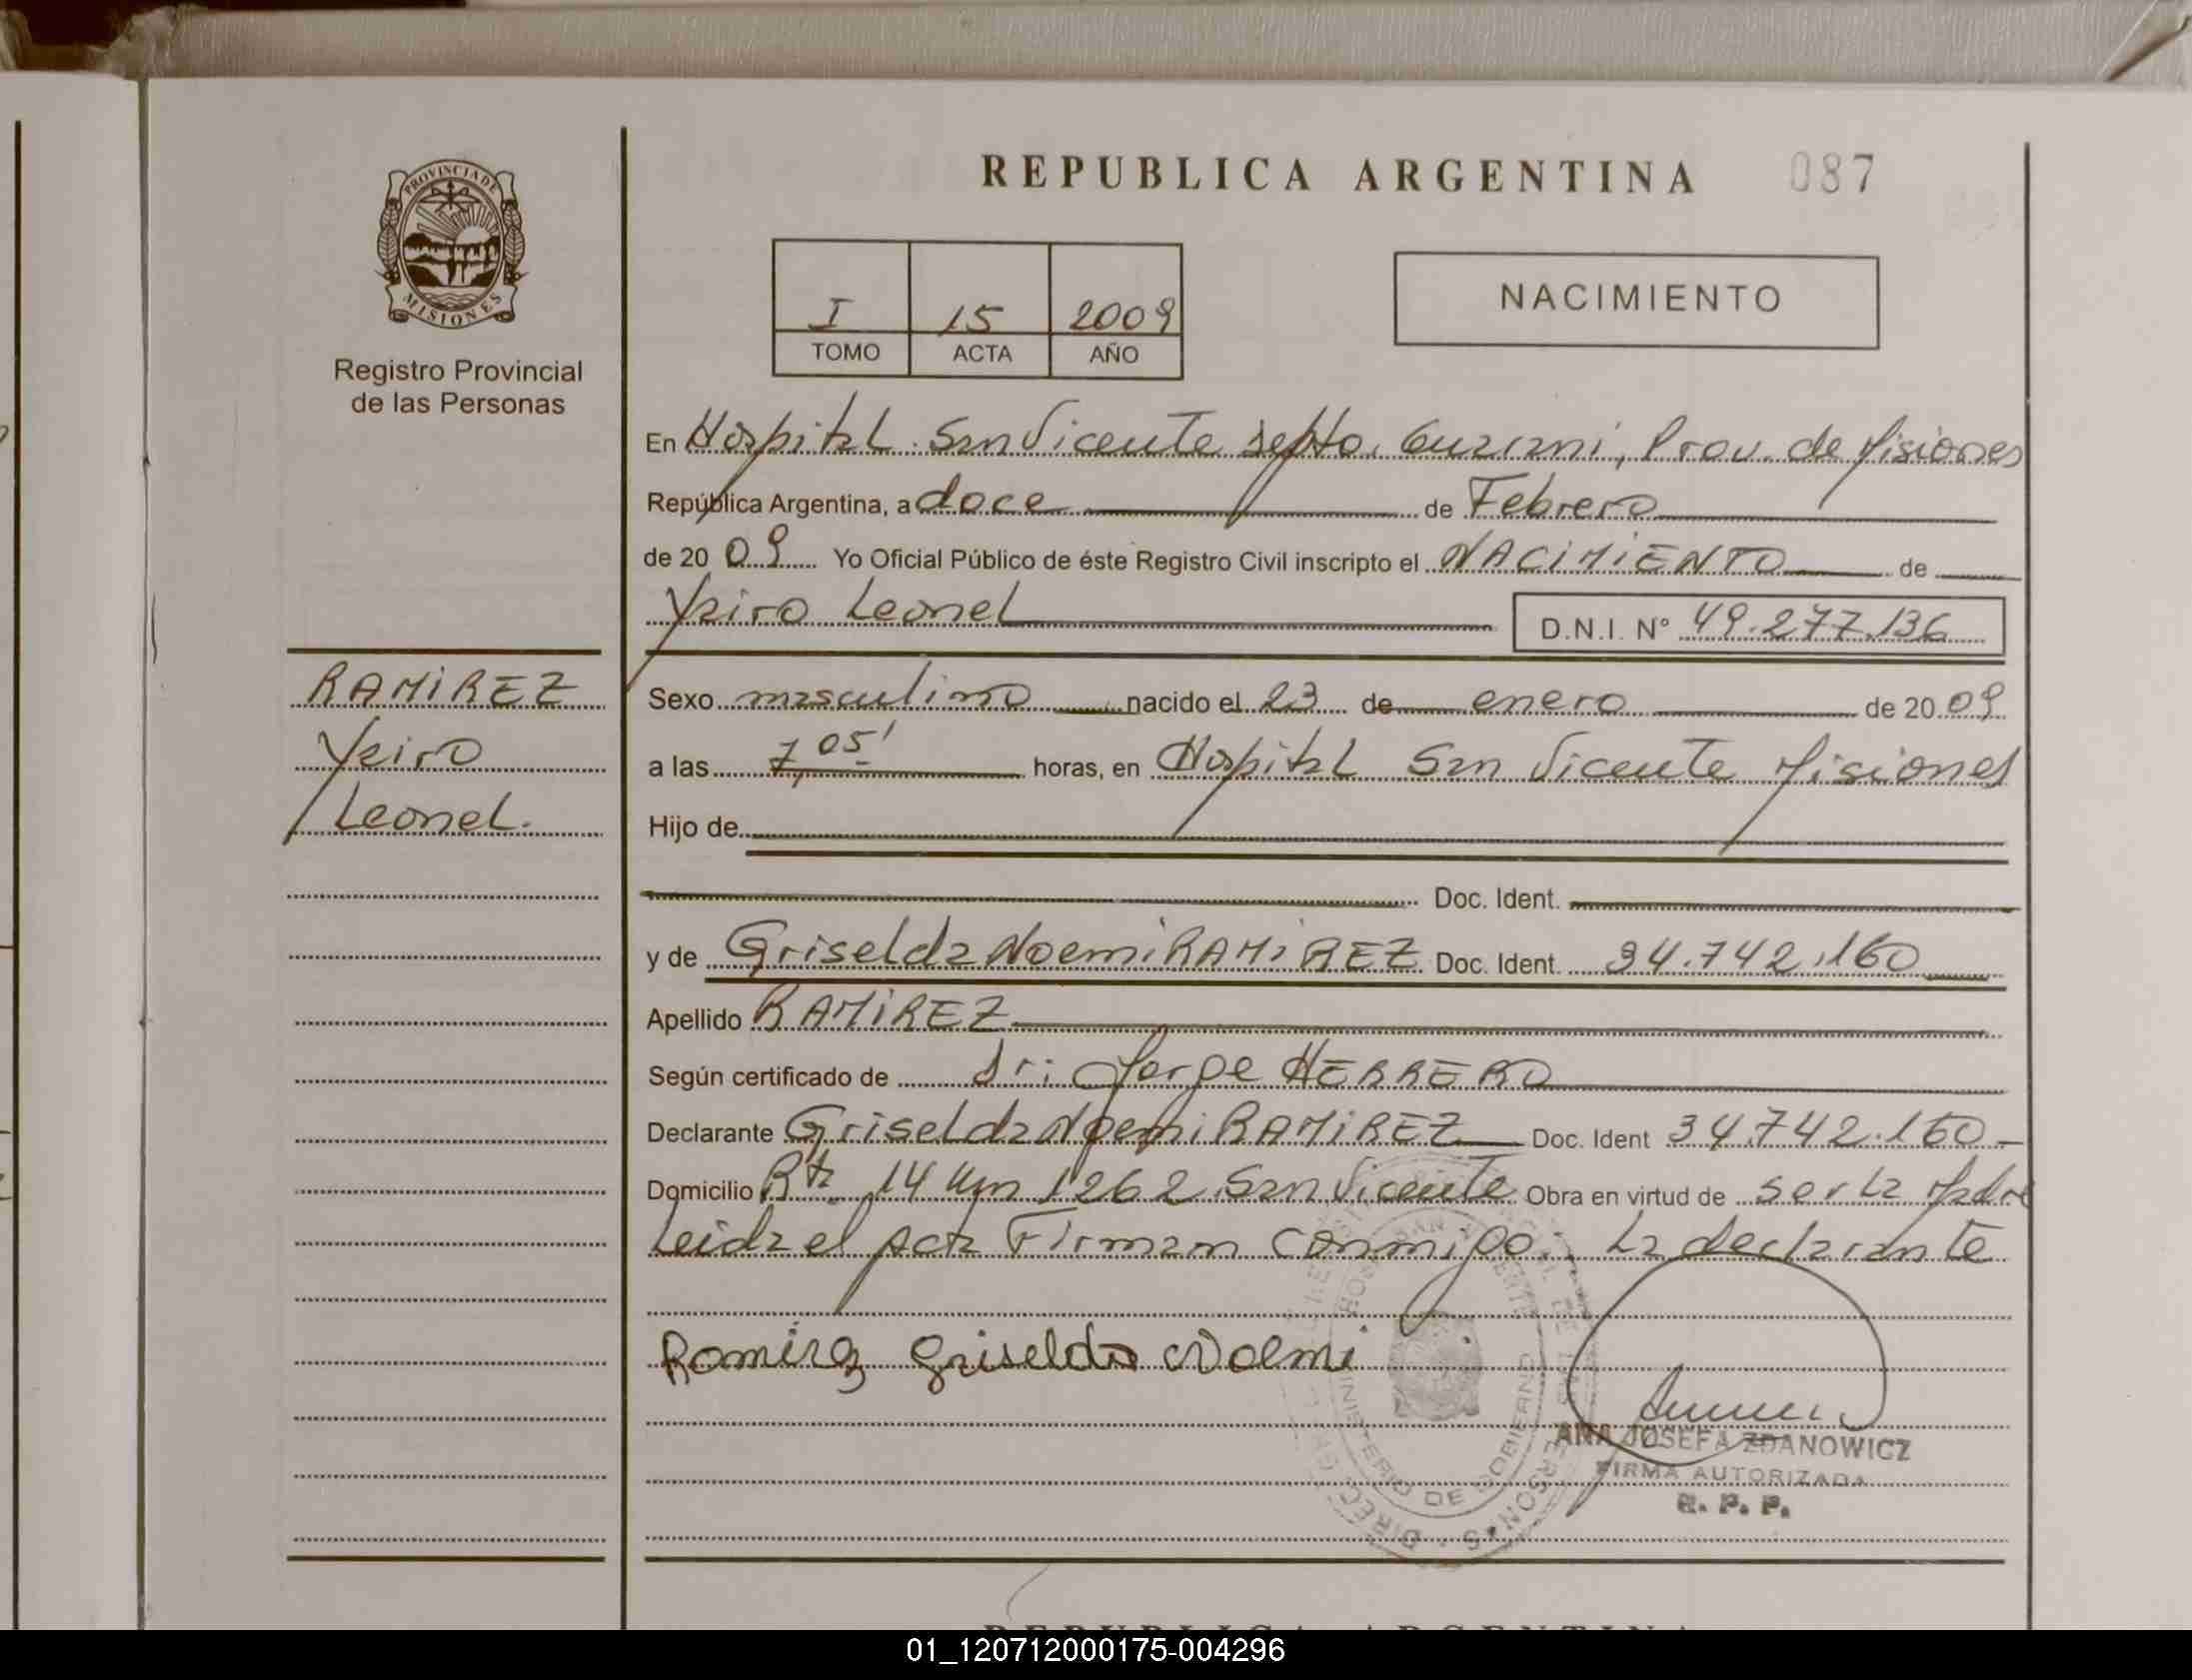 REPUBLICA ARGENTINA 087
PROVINCIA DE
MISIONES
Registro Provincial
de las Personas
I 15 2009
TOMO ACTA AÑO
NACIMIENTO
En Hospital San Vicente depto. Guarani, Prov. de Misiones
República Argentina, a doce de Febrero
de 2009 Yo Oficial Público de éste Registro Civil inscripto el NACIMIENTO de
Yairo Leonel D.N.I. Nº 49.277.136
RAMIREZ
Yairo
Leonel.
Sexo masculino nacido el 23 de enero de 2009
a las 7,05' horas, en Hospital San Vicente Misiones
Hijo de
Doc. Ident.
y de Griselda Noemi RAMIREZ Doc. Ident. 34.742.160
Apellido RAMIREZ
Según certificado de Dr: Jorge HERRERO
Declarante Griselda Noemi RAMIREZ Doc. Ident 34.742.160
Domicilio Rta 14 Km 1262 San Vicente Obra en virtud de ser la Madre
Leida el Acta Firman conmigo. La declarante
Ramirez Griselda Noemi
ANA JOSEFA ZDANOWICZ
FIRMA AUTORIZADA
R. P. P.
MINISTERIO DE GOBIERNO
REPUBLICA ARGENTINA
01_120712000175-004296